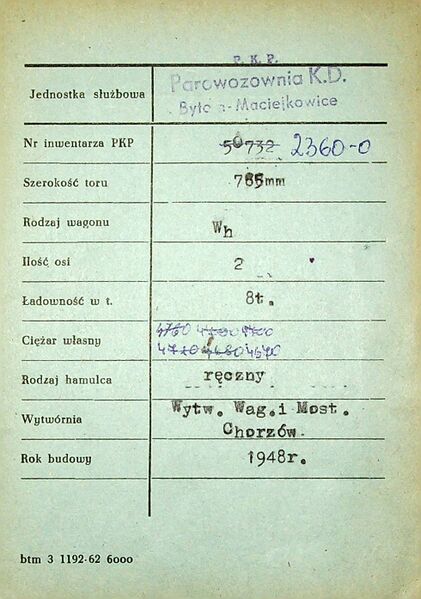 P. K. P.
Jednostka służbowa Parowozownia K.D.
Bytom-Maciejkowice
Nr inwentarza PKP 50732 2360-0
Szerokość toru 785mm
Rodzaj wagonu Wh
Ilość osi 2
Ładowność w t. 8t.
Ciężar własny 4760
4720 4680 4670
Rodzaj hamulca ręczny
Wytwórnia Wytw. Wag. i Most.
Chorzów.
Rok budowy 1948r.
btm 3 1192-62 6000